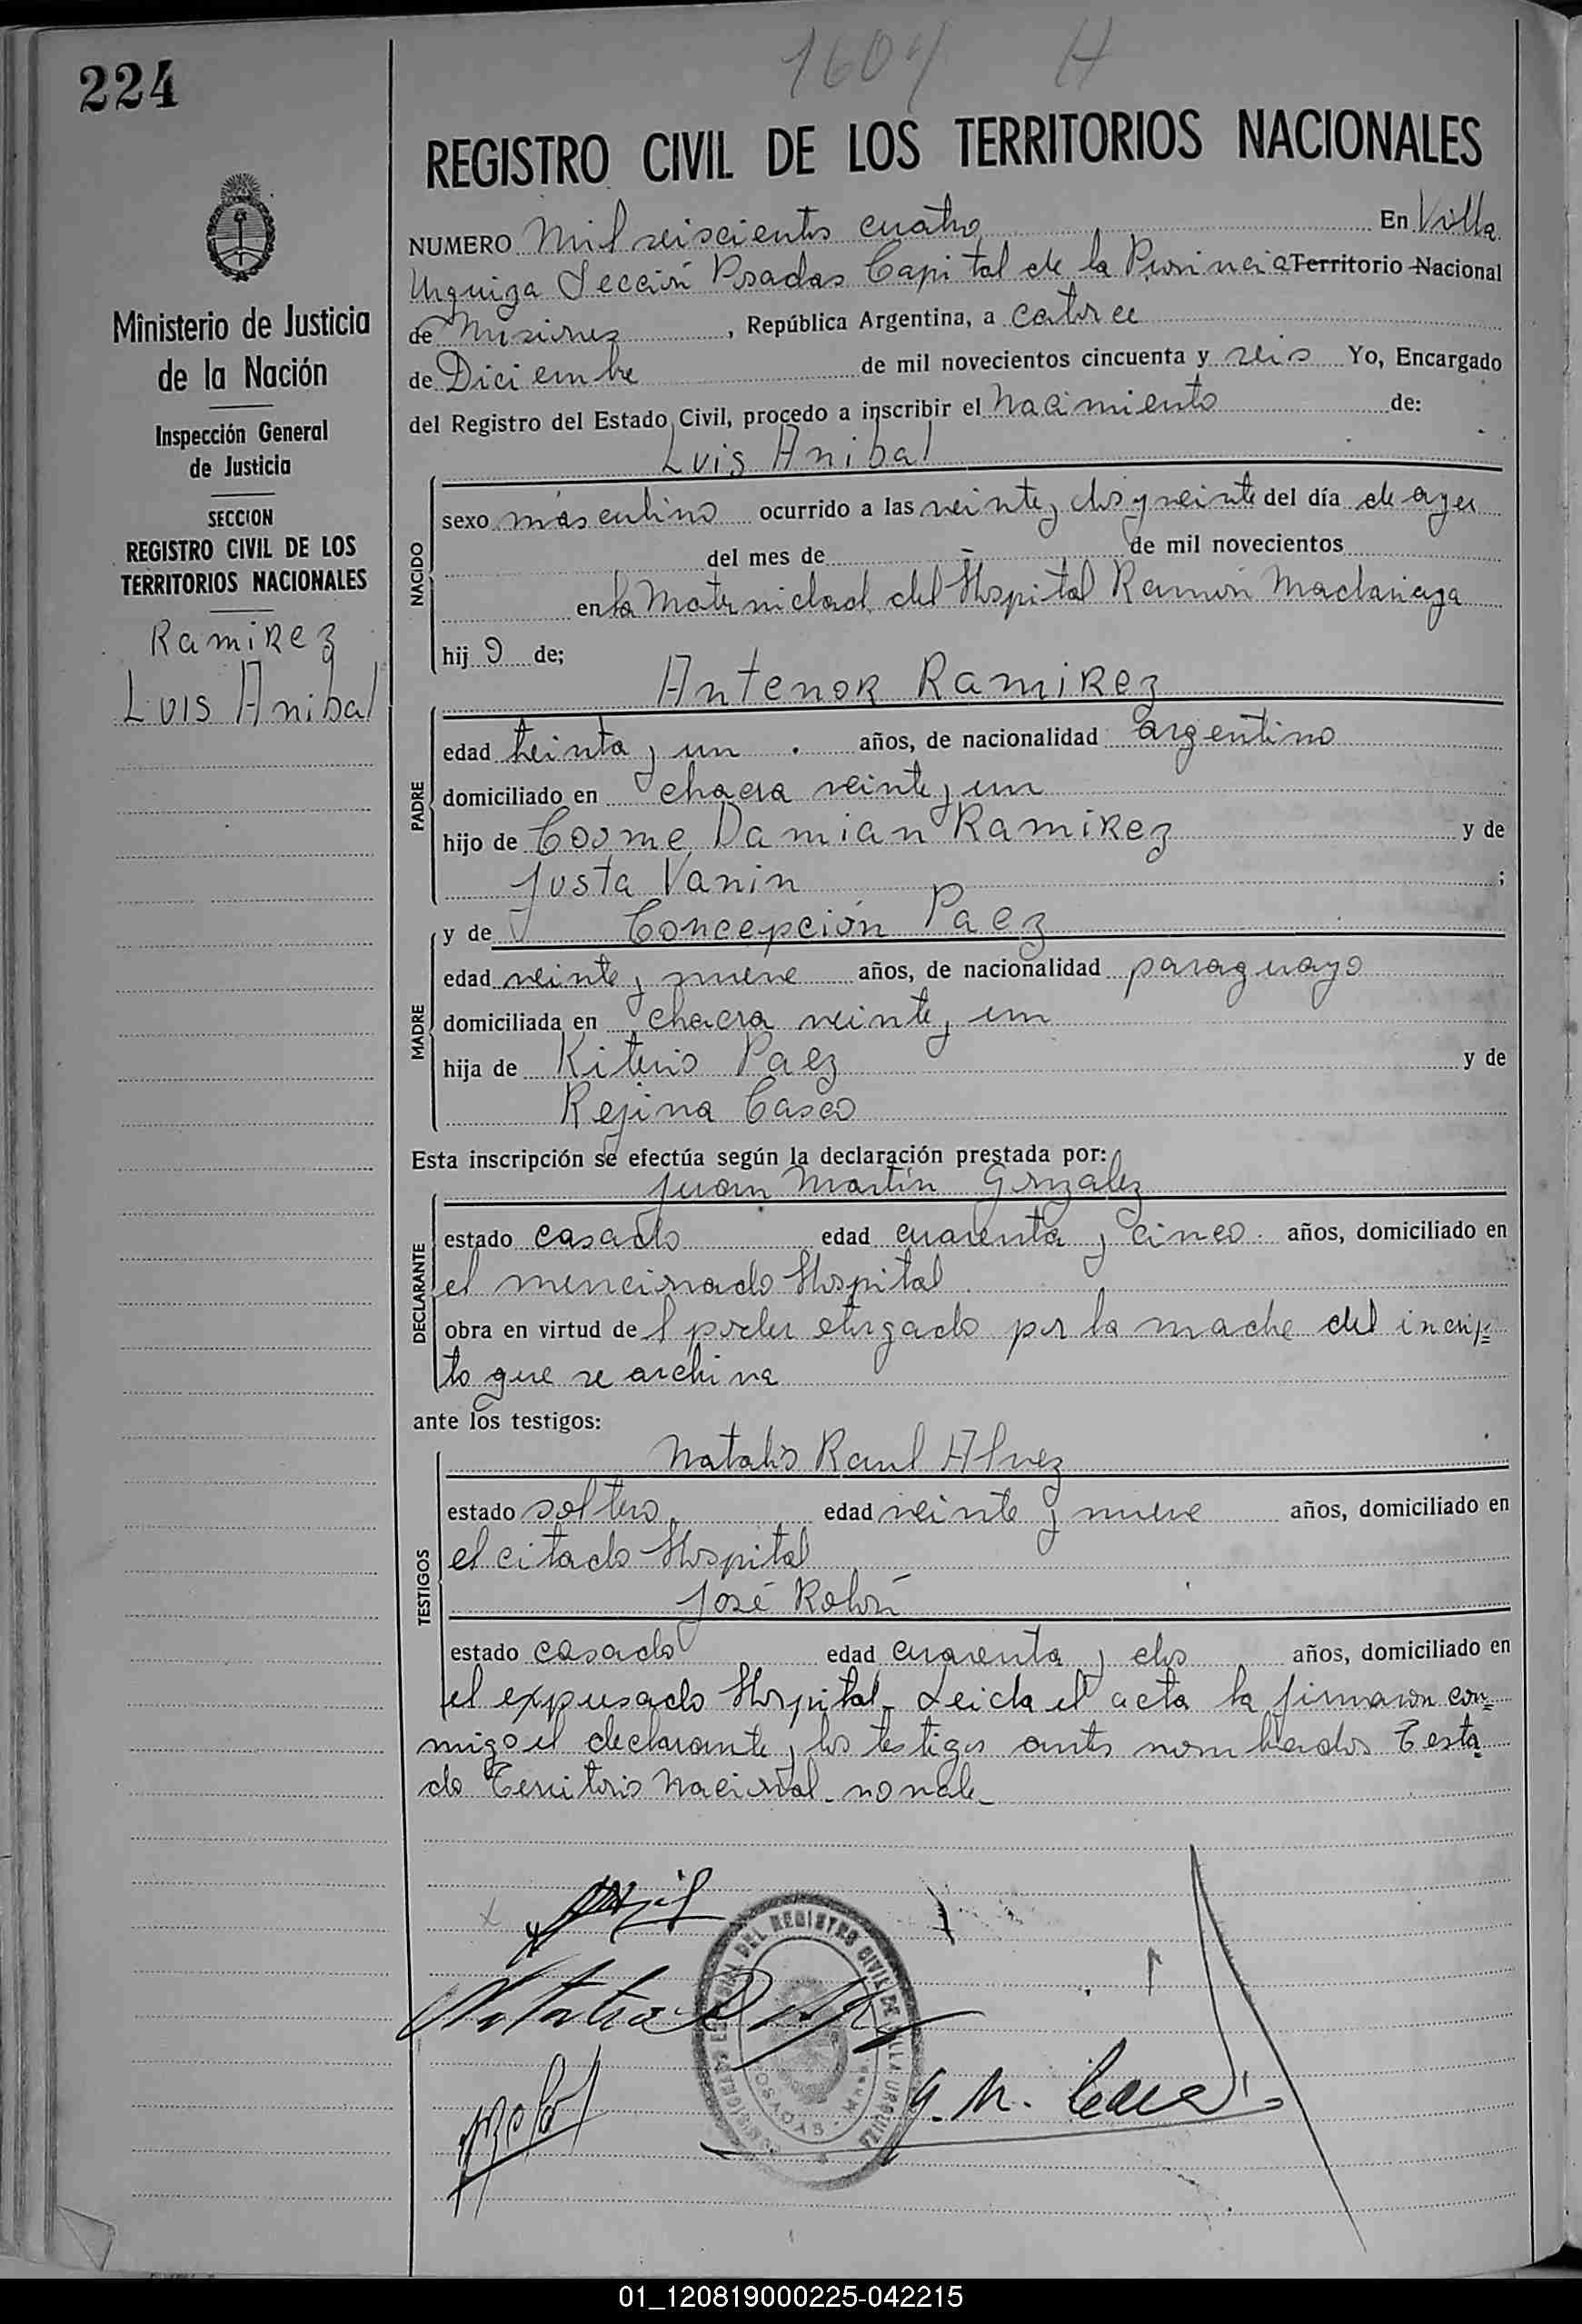 224
1604 H
REGISTRO CIVIL DE LOS TERRITORIOS NACIONALES
Ministerio de Justicia
de la Nación
Inspección General
de Justicia
SECCION
REGISTRO CIVIL DE LOS
TERRITORIOS NACIONALES
Ramirez
Luis Anibal
NUMERO Mil seiscientos cuatro En Villa
Urquiza Sección Posadas Capital de la Provincia Territorio Nacional
de Misiones, República Argentina, a catorce
de Diciembre de mil novecientos cincuenta y seis Yo, Encargado
del Registro del Estado Civil, procedo a inscribir el Nacimiento de:
Luis Anibal
NACIDO
sexo masculino ocurrido a las veinte y dos y veinte del día de ayer
del mes de - de mil novecientos
en la Maternidad del Hospital Ramón Madariaga
hij o de;
Antenor Ramirez
PADRE
edad treinta y un . años, de nacionalidad argentino
domiciliado en chacra veinte y un
hijo de Cosme Damian Ramirez y de
Justa Vanin ;
MADRE
y de Concepción Paez
edad veinte y nueve años, de nacionalidad paraguayo
domiciliada en chacra veinte y un
hija de Kiterio Paez y de
Rejina Casco
Esta inscripción se efectúa según la declaración prestada por:
Juan Martín Gonzalez
DECLARANTE
estado casado edad cuarenta y cinco . años, domiciliado en
el mencionado Hospital
obra en virtud de l poder otorgado por la madre del inscrip=
to que se archiva
ante los testigos:
Natalio Raul Alvez
TESTIGOS
estado soltero edad veinte y nueve años, domiciliado en
el citado Hospital
José Rolón
estado casado edad cuarenta y dos años, domiciliado en
el expresado Hospital - Leida el acta la firmaron con=
migo el declarante y los testigos antes nombrados Testa=
do Territorio Nacional - no vale -
DEL REGISTRO CIVIL DE VILLA URQUIZA
POSADAS - Mnes.
01_120819000225-042215